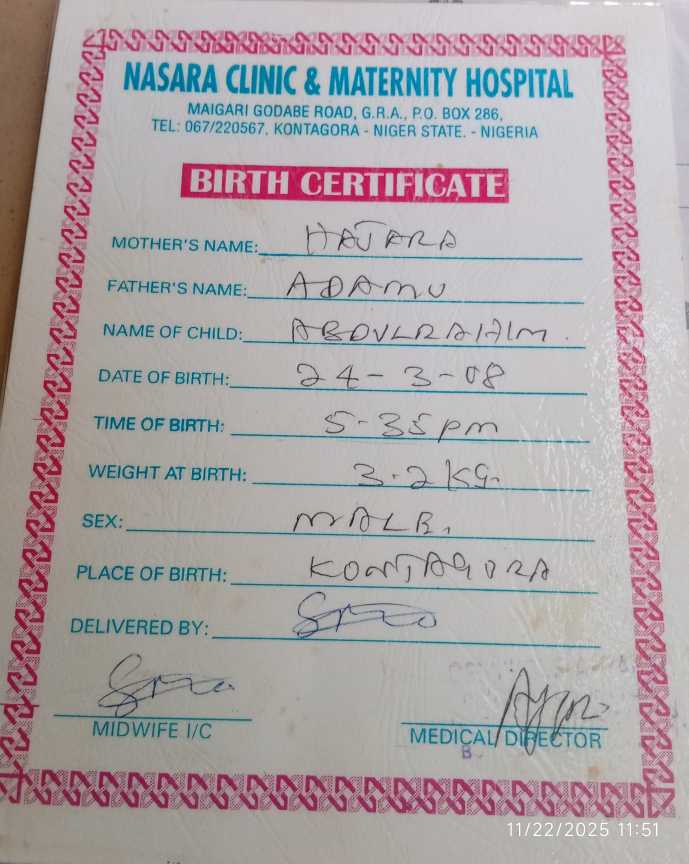 NASARA CLINIC & MATERNITY HOSPITAL
MAIGARI GODABE ROAD, G.R.A., P.O. BOX 286,
TEL: 067/220567, KONTAGORA - NIGER STATE. - NIGERIA
BIRTH CERTIFICATE
MOTHER'S NAME: HAJARA
FATHER'S NAME: ADAMU
NAME OF CHILD: ABDULRAHIM.
DATE OF BIRTH: 24-3-08
TIME OF BIRTH: 5-35pm
WEIGHT AT BIRTH: 3.2KG.
SEX: MALE.
PLACE OF BIRTH: KONTAGORA
DELIVERED BY:
MIDWIFE I/C MEDICAL DIRECTOR
11/22/2025 11:51